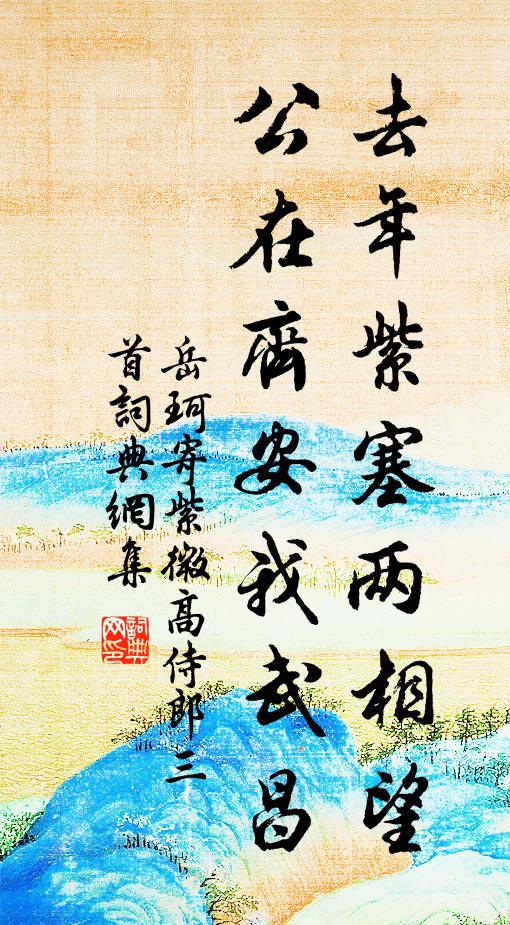 去年紫塞两相望
公在齊安我武昌
岳珂寄紫微高侍郎三
首詞典網集
詞典
网印